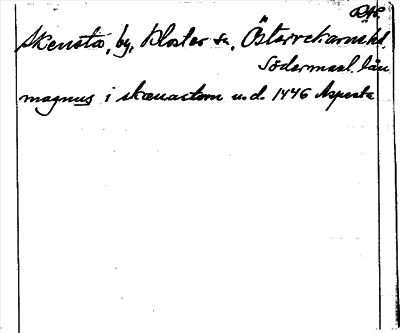 D.40.
Skensta, by, Kloster sn, Österrekarne hd.
Södermanl. län
magnus i skænastom u.d. 1446 Aspesta